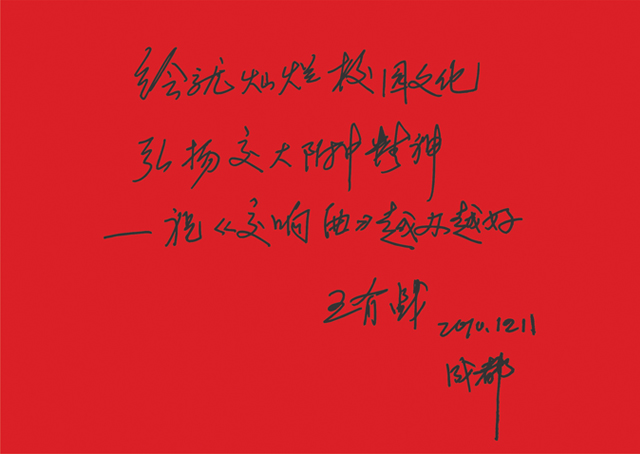 绘就灿烂校园文化
弘扬交大附中精神
—祝《交响曲》越办越好
王有战
2010.12.11
成都